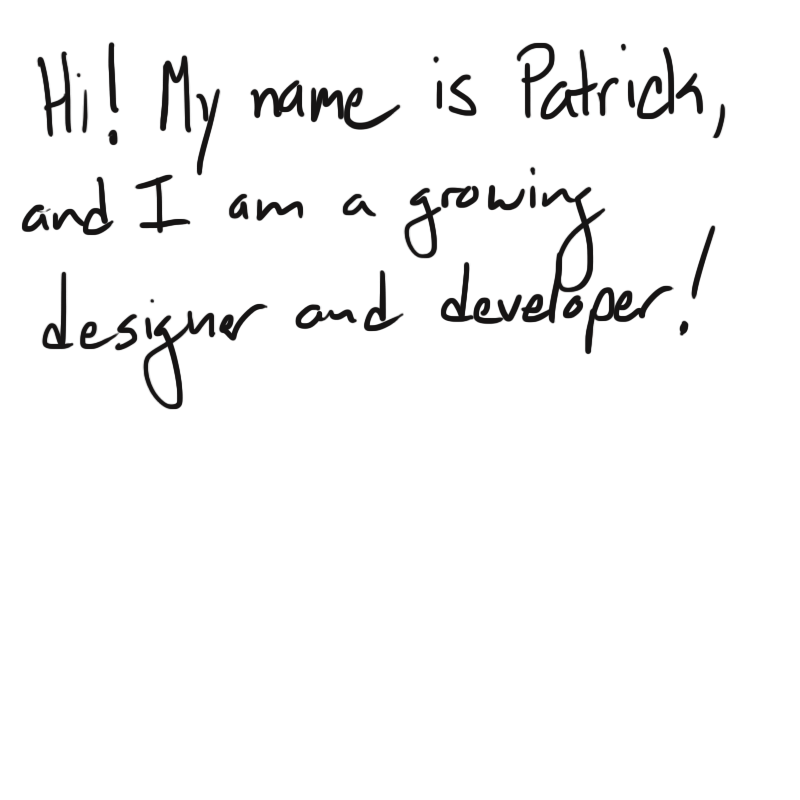 Hi! My name is Patrick,
and I am a growing
designer and developer!